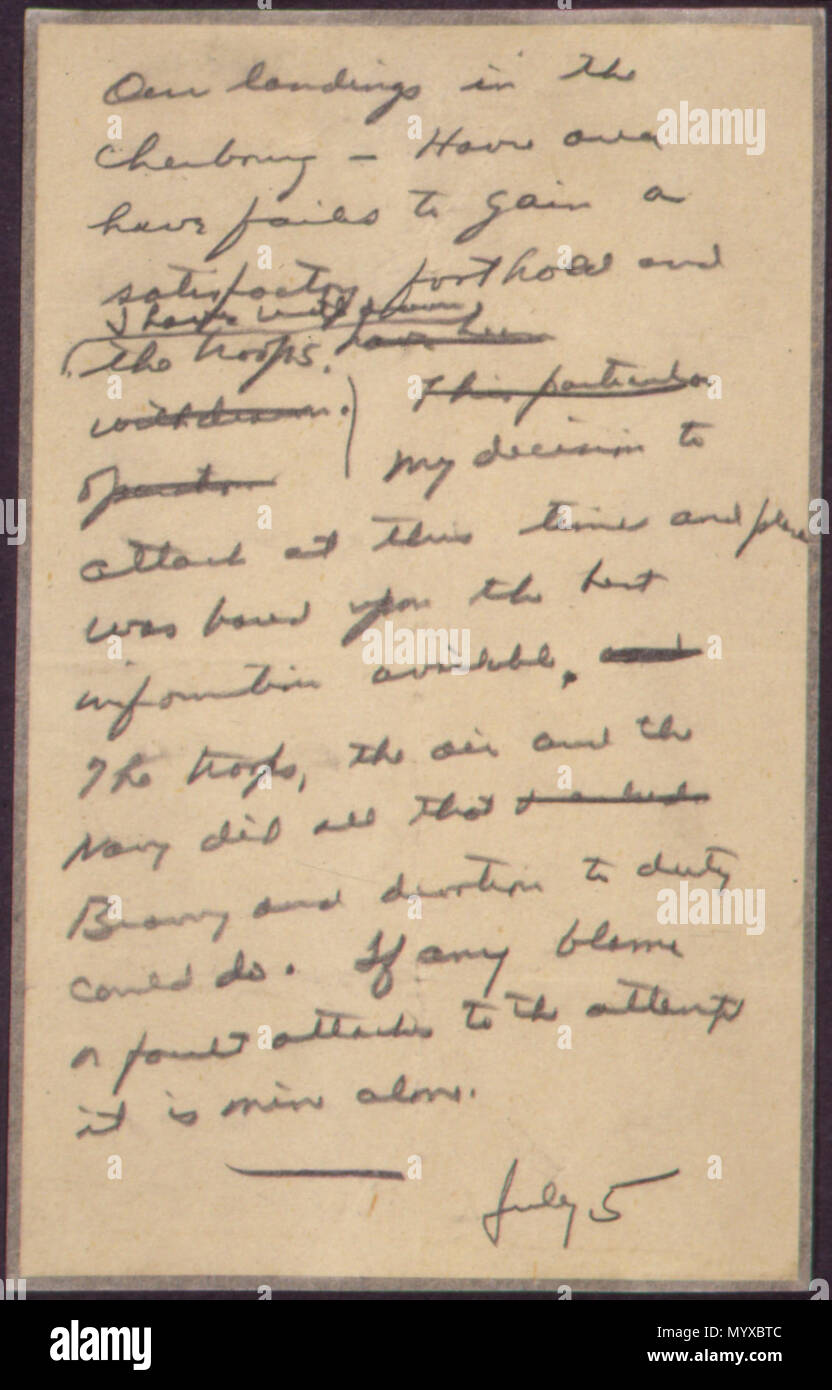 Our landings in the
Cherbourg – Havre area
have failed to gain a
satisfactory foothold and
I have withdrawn
the troops. have been
withdrawn. This particular
operation My decision to
attack at this time and place
was based upon the best
information available, and
The troops, the air and the
Navy did all that
Bravery and devotion to duty
could do. If any blame
or fault attaches to the attempt
it is mine alone.
July 5
alamy
Image ID: MYXBTC
www.alamy.com